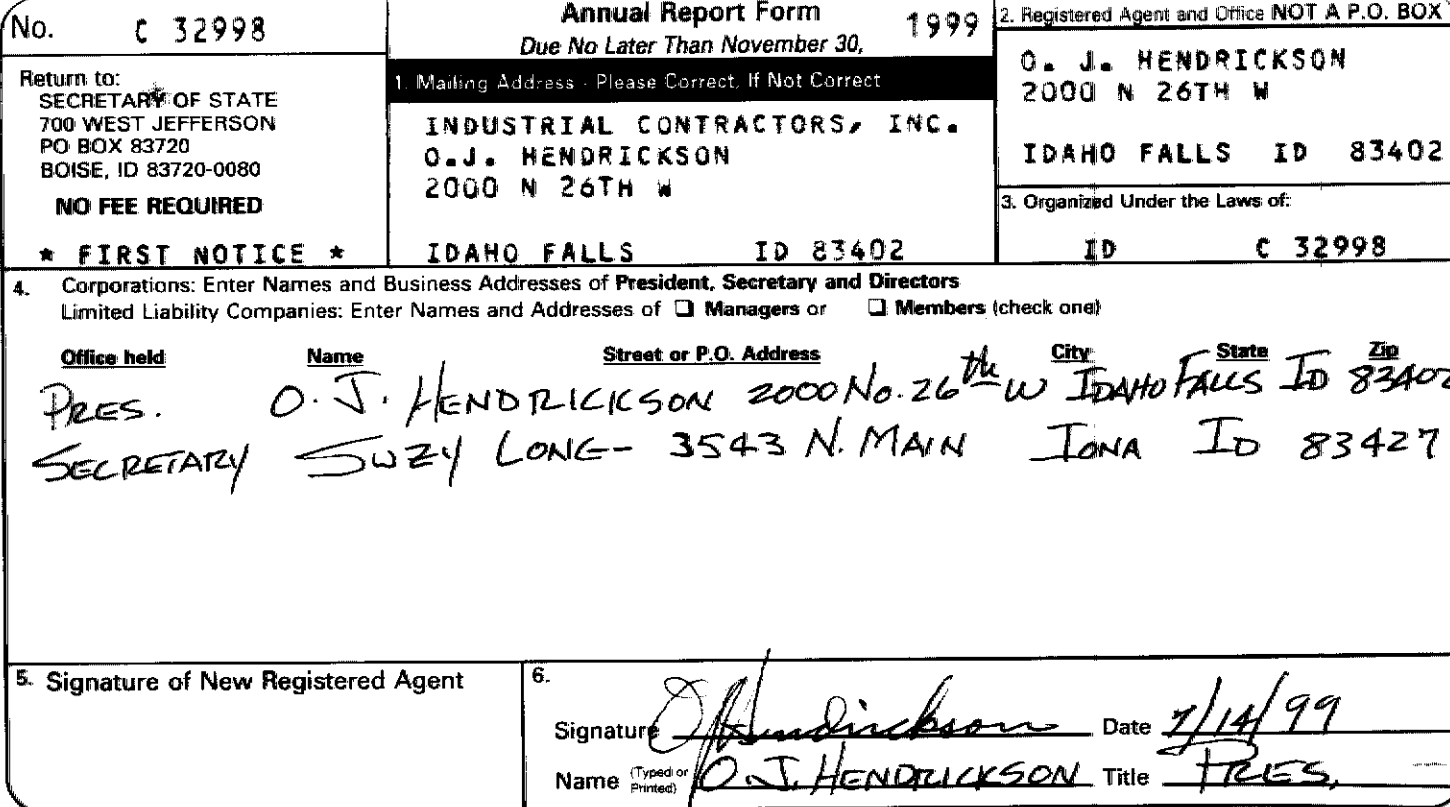 No. C 32998
Return to:
SECRETARY OF STATE
700 WEST JEFFERSON
PO BOX 83720
BOISE, ID 83720-0080
NO FEE REQUIRED
* FIRST NOTICE *
Annual Report Form 1999
Due No Later Than November 30,
1. Mailing Address - Please Correct, If Not Correct
INDUSTRIAL CONTRACTORS, INC.
O.J. HENDRICKSON
2000 N 26TH W
IDAHO FALLS ID 83402
2. Registered Agent and Office NOT A P.O. BOX
O. J. HENDRICKSON
2000 N 26TH W
IDAHO FALLS ID 83402
3. Organized Under the Laws of:
ID C 32998
4. Corporations: Enter Names and Business Addresses of President, Secretary and Directors
Limited Liability Companies: Enter Names and Addresses of ❏ Managers or ❏ Members (check one)
Office held Name Street or P.O. Address City State Zip
PRES. O. J. HENDRICKSON 2000 No. 26th W IDAHO FALLS ID 83402
SECRETARY SUZY LONG- 3543 N. MAIN IONA ID 83427
5. Signature of New Registered Agent
6.
Signature OJ Hendrickson Date 7/14/99
Name (Typed or Printed) O.J. HENDRICKSON Title PRES.